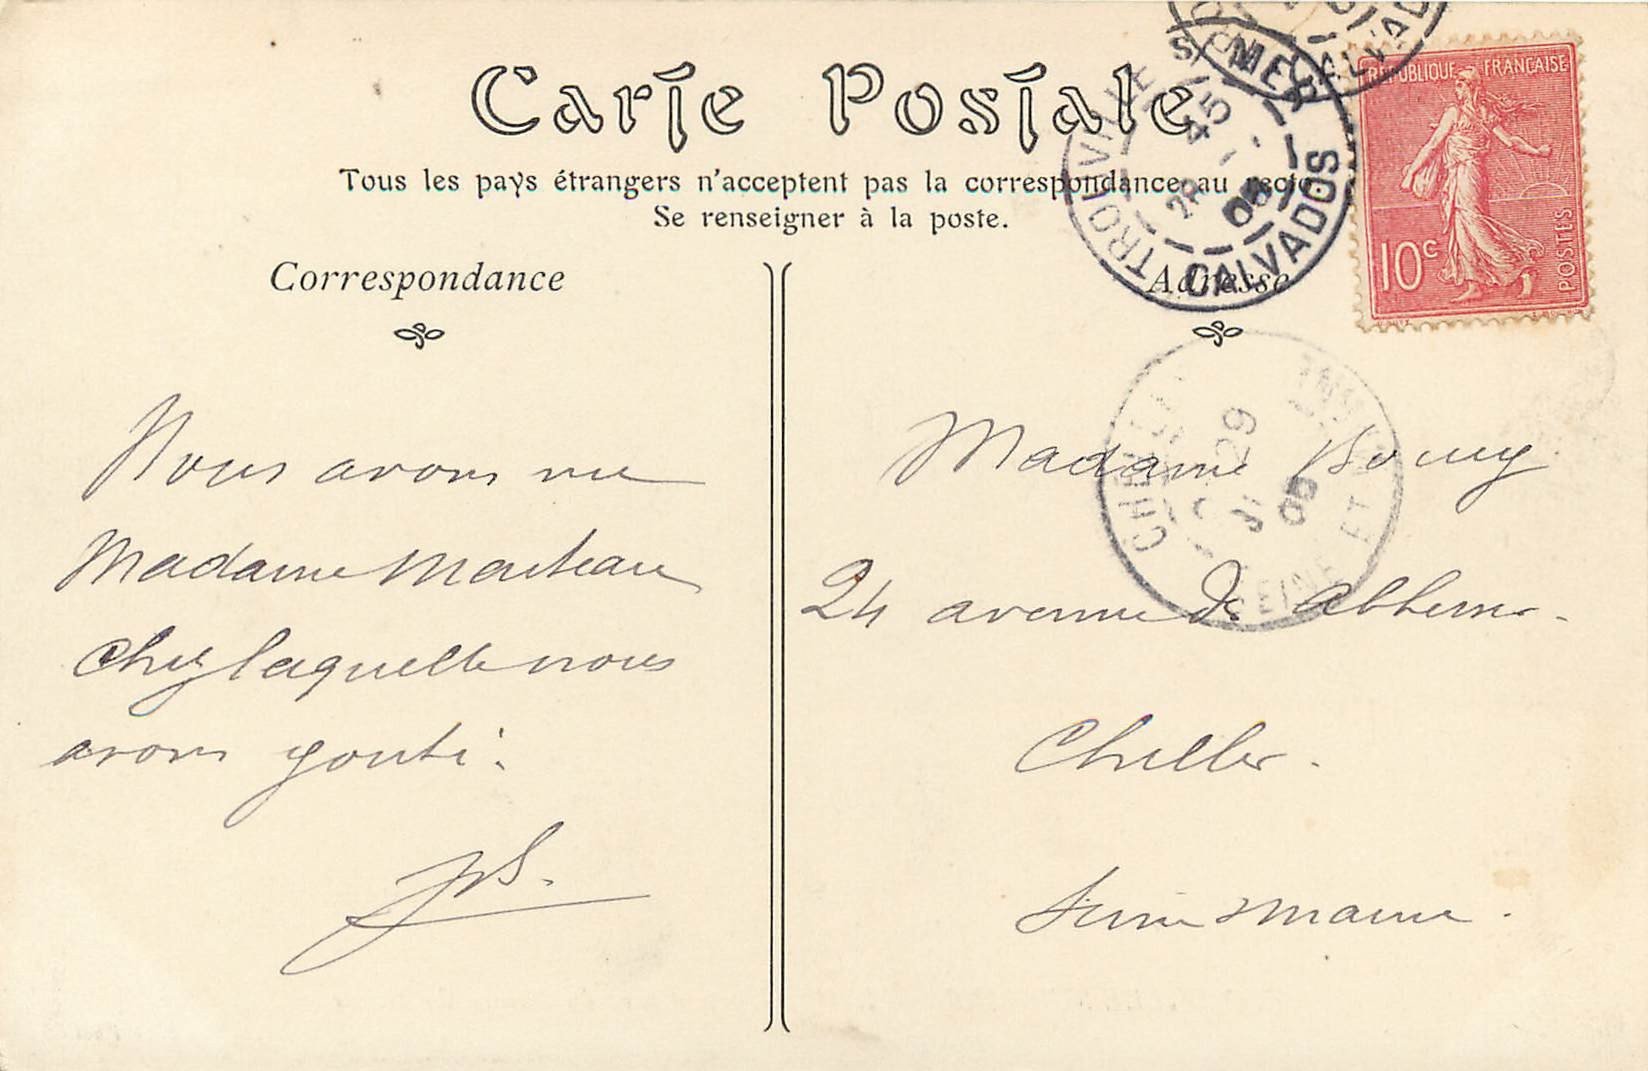 Carte Postale
Tous les pays étrangers n'acceptent pas la correspondance au recto
Se renseigner à la poste.
Correspondance
Adresse
TROUVILLE S MER
45
28
05
CALVADOS
REPUBLIQUE FRANÇAISE
10c
POSTES
29
05
SEINE ET MARNE
Nous avons vu
Madame Marteau
Chez laquelle nous
avons gouté.
Madame
24 avenue de
Chelles.
Seine & Marne.